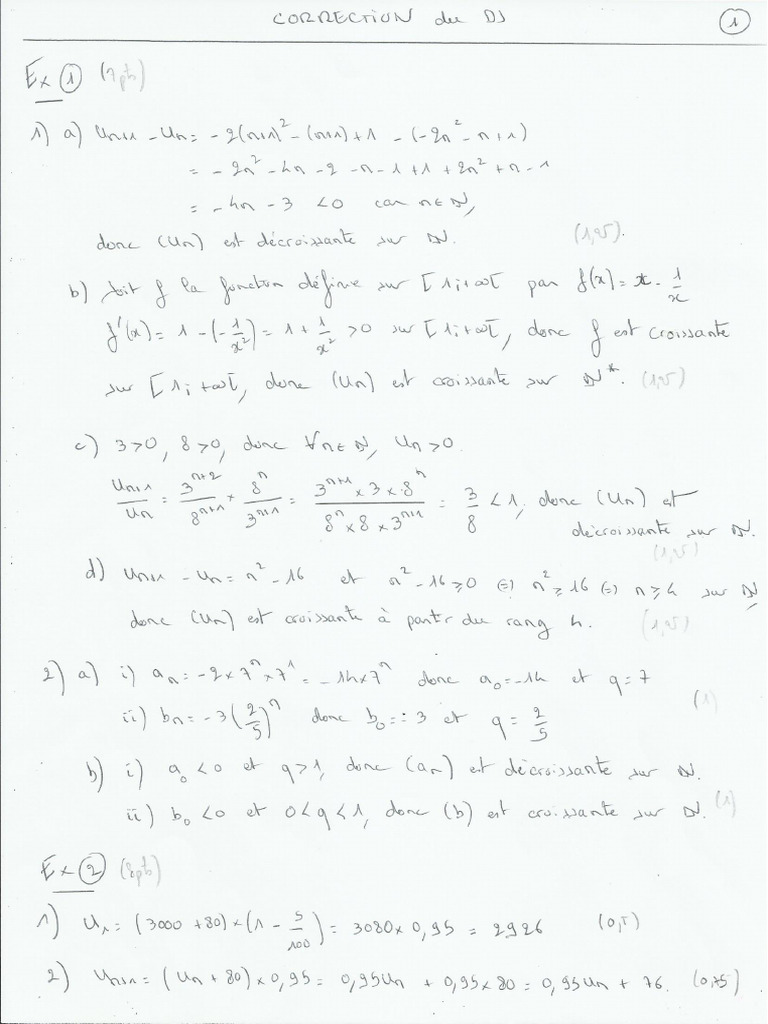 CORRECTION du DS
1
Ex 1 (7pts)
1) a) Un+1 - Un = -2(n+1)² - (n+1) + 1 - (-2n² - n + 1)
= -2n² - 4n - 2 - n - 1 + 1 + 2n² + n - 1
= -4n - 3 < 0 car n ∈ ℕ,
donc (Un) est décroissante sur ℕ. (1,25).
b) Soit f la fonction définie sur [1;+∞[ par f(x) = x - 1/x
f'(x) = 1 - (-1/x²) = 1 + 1/x² > 0 sur [1;+∞[, donc f est croissante
sur [1;+∞[, donc (Un) est croissante sur ℕ*. (1,25)
c) 3>0, 8>0, donc ∀n∈ℕ, Un>0.
Un+1/Un = 3ⁿ⁺²/8ⁿ⁺¹ × 8ⁿ/3ⁿ⁺¹ = (3ⁿ⁺¹ × 3 × 8ⁿ)/(8ⁿ × 8 × 3ⁿ⁺¹) = 3/8 < 1, donc (Un) est
décroissante sur ℕ.
(1,25)
d) Un+1 - Un = n² - 16 et n² - 16 ≥ 0 ⇔ n² ≥ 16 ⇔ n ≥ 4 sur ℕ,
donc (Un) est croissante à partir du rang 4. (1,25)
2) a) i) an = -2 × 7ⁿ × 7¹ = -14 × 7ⁿ donc a0 = -14 et q = 7
(1)
ii) bn = -3(2/5)ⁿ donc b0 = -3 et q = 2/5
b) i) a0 < 0 et q > 1, donc (an) est décroissante sur ℕ.
ii) b0 < 0 et 0 < q < 1, donc (b) est croissante sur ℕ. (1)
Ex 2 (8pts)
1) U1 = (3000 + 80) × (1 - 5/100) = 3080 × 0,95 = 2926 (0,5)
2) Un+1 = (Un + 80) × 0,95 = 0,95Un + 0,95 × 80 = 0,95Un + 76. (0,75)